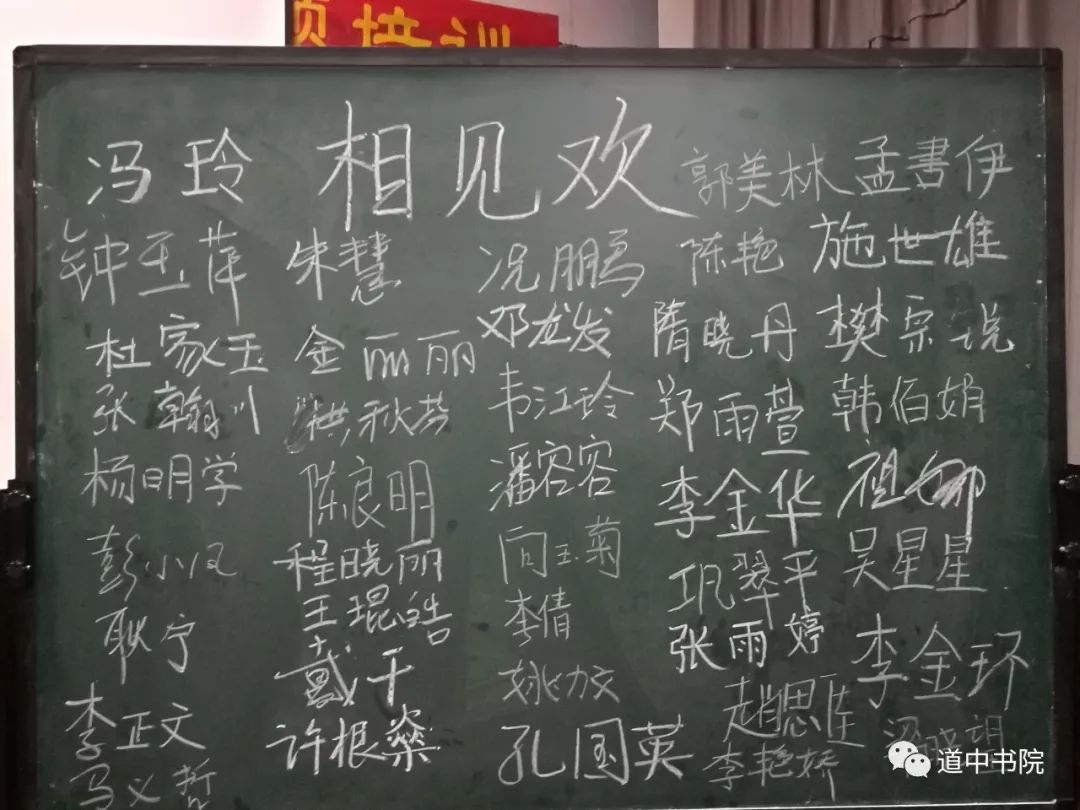 培训
冯玲 相见欢 郭美林 孟書伊
钟玉萍 朱慧 况鹏 陈艳 施世雄
杜家玉 金丽丽 邓龙发 隋晓丹 樊宗悦
张翰川 洪秋芬 韦江玲 郑雨萱 韩伯娟
杨明学 陈良明 潘容容 李金华 祖娜
彭小凤 程晓丽 向玉菊 巩翠平 吴星星
耿宁 王琨皓 李倩 张雨婷 李金环
李正文 戴干 姚力文 赵思莲
马义哲 许根燊 孔国英 李艳娇
道中书院